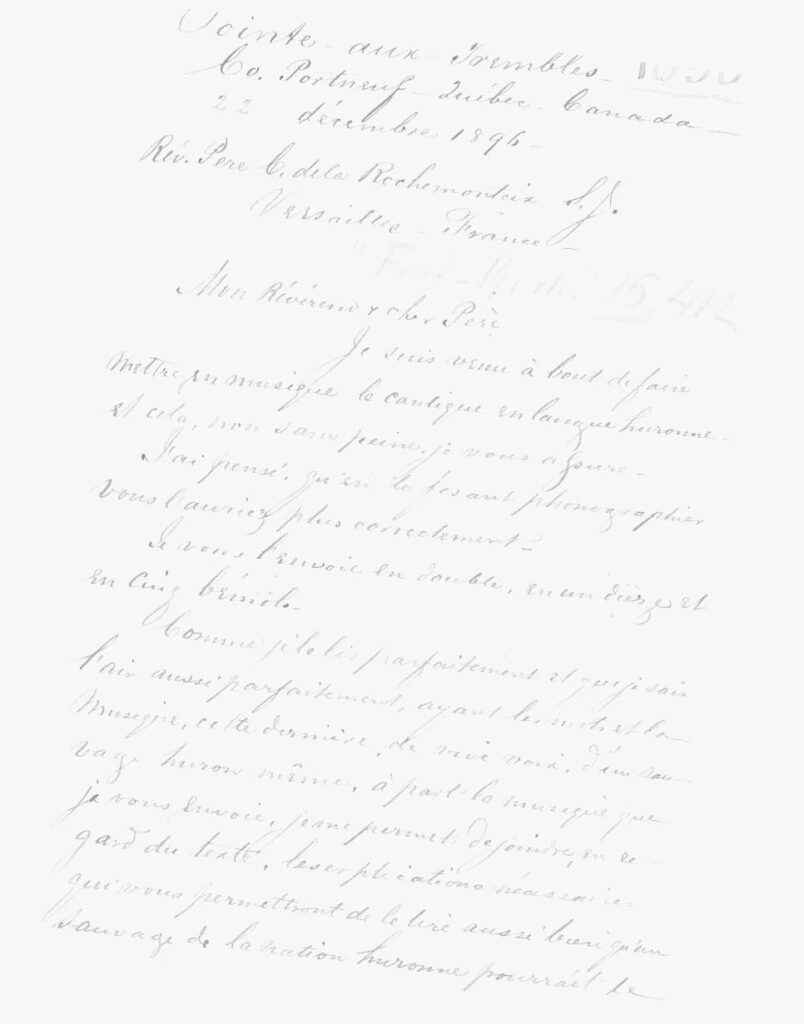 Pointe-aux-Trembles
Co. Portneuf - Québec - Canada -
22 décembre 1896 -
Rév. Père C. de la Rochemonteix S.J.
Versailles - France -
15 412
Mon Révérend & cher Père
Je suis venu à bout de faire
mettre en musique le cantique en langue huronne -
et cela, non sans peine, je vous assure -
J'ai pensé, qu'en le fesant phonographier
vous l'auriez plus correctement -
Je vous l'envoie en double, en un dièze et
en cinq bémols -
Comme je le lis parfaitement et que je sais
l'air aussi parfaitement, ayant les mots et la
musique, cette dernière, de vive voix, d'un sau-
vage huron même, à part la musique que
je vous envoie, je me permets de joindre, en re-
gard du texte, les explications nécessaires
qui vous permettront de le lire aussi bien qu'un
sauvage de la nation huronne pourrait le